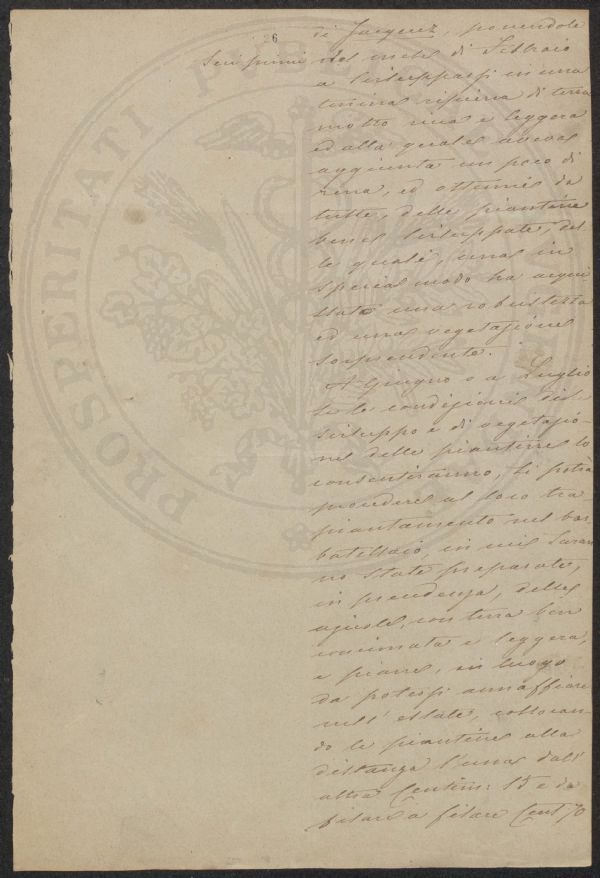 26
di Jacquez, ponendole
Sui primi del mese di Febbraio
a svilupparsi in una
terrina ripiena di terra
molto ricca e leggera
ed alla quale aveva
aggiunta un poco di
rena, ed ottenni da
tutte, delle piantine
bene sviluppate, del-
le quali, una in
special modo ha acqui-
stato una robustezza
ed una vegetazione
sorprendente.
A Giugno o a Luglio
se le condizioni del
sviluppo e di vegetazio-
ne delle piantine lo
consentiranno, si potrà
procedere al loro tra-
piantamento nel bar-
batellaio, in cui saran-
no state preparate,
in precedenza, delle
ajuole, con terra ben
concimata e leggera,
e piane, in luogo
da potersi annaffiare
nell' estate, collocan-
do le piantine alla
distanza l'una dall'
altra Centim: 15 e da
filare a filare Cent 70
PROSPERITATI PUBLICAE